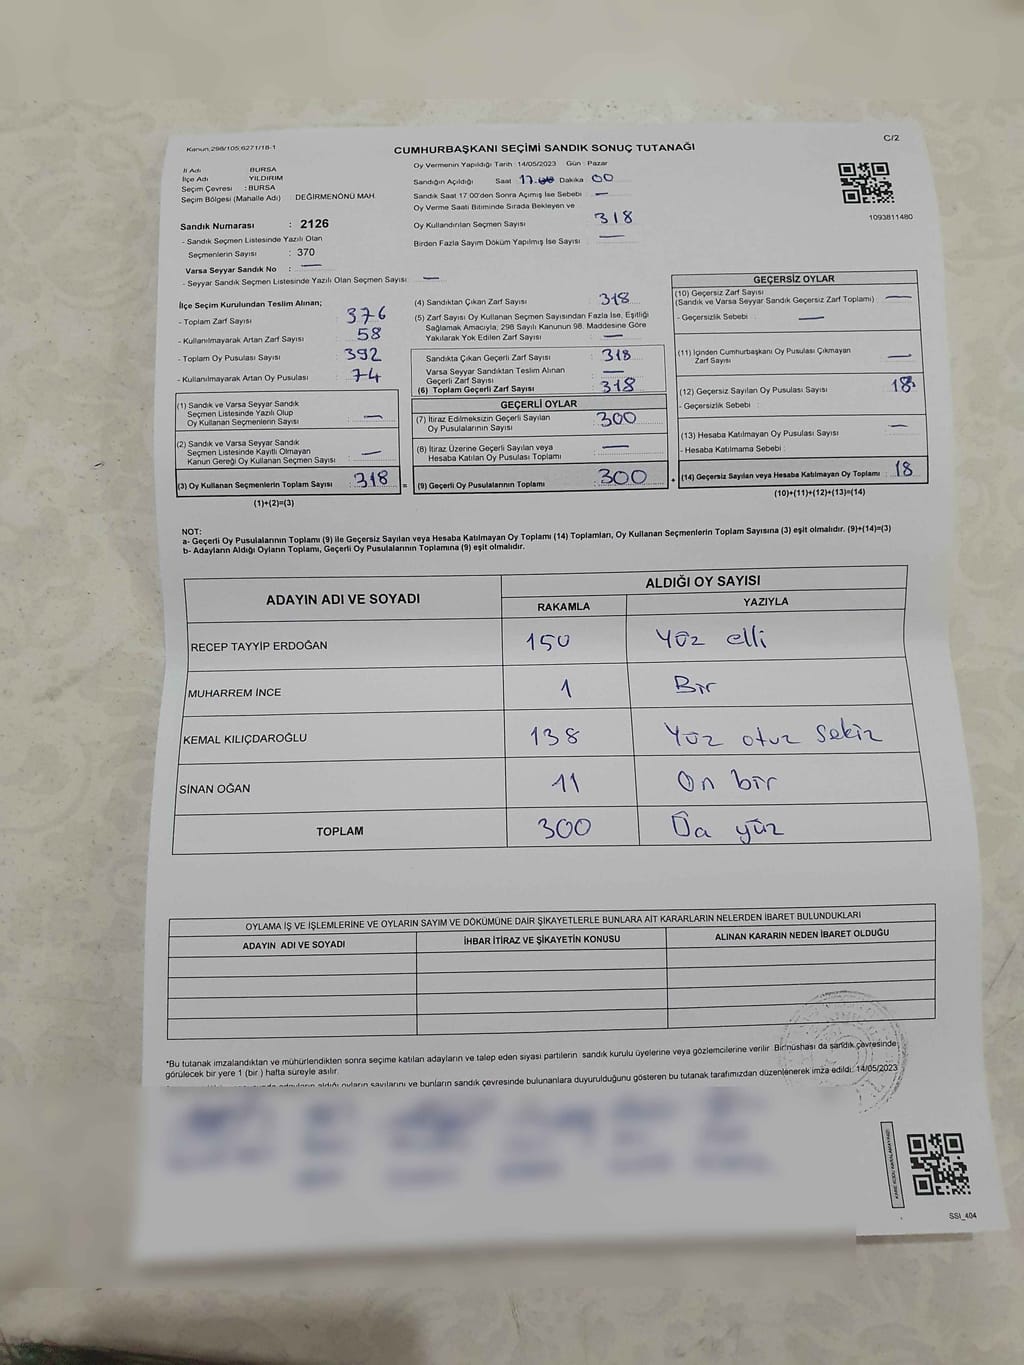 Kanun:298/105;6271/18-1
C/2
CUMHURBAŞKANI SEÇİMİ SANDIK SONUÇ TUTANAĞI
İl Adı BURSA
İlçe Adı YILDIRIM
Seçim Çevresi : BURSA
Seçim Bölgesi (Mahalle Adı) : DEĞİRMENÖNÜ MAH.
Sandık Numarası : 2126
- Sandık Seçmen Listesinde Yazılı Olan
Seçmenlerin Sayısı : 370
Varsa Seyyar Sandık No : —
- Seyyar Sandık Seçmen Listesinde Yazılı Olan Seçmen Sayısı: —
Oy Vermenin Yapıldığı Tarih : 14/05/2023 Gün : Pazar
Sandığın Açıldığı Saat 17.00 Dakika 00
Sandık Saat 17:00'den Sonra Açımış İse Sebebi : —
Oy Verme Saati Bitiminde Sırada Bekleyen ve
Oy Kullandırılan Seçmen Sayısı : 318
Birden Fazla Sayım Döküm Yapılmış İse Sayısı : —
1093811480
İlçe Seçim Kurulundan Teslim Alınan;
- Toplam Zarf Sayısı : 376
- Kullanılmayarak Artan Zarf Sayısı : 58
- Toplam Oy Pusulası Sayısı : 392
- Kullanılmayarak Artan Oy Pusulası : 74
(1) Sandık ve Varsa Seyyar Sandık
Seçmen Listesinde Yazılı Olup
Oy Kullanan Seçmenlerin Sayısı : —
(2) Sandık ve Varsa Seyyar Sandık
Seçmen Listesinde Kayıtlı Olmayan
Kanun Gereği Oy Kullanan Seçmen Sayısı : —
(3) Oy Kullanan Seçmenlerin Toplam Sayısı : 318
(1)+(2)=(3)
(4) Sandıktan Çıkan Zarf Sayısı : 318
(5) Zarf Sayısı Oy Kullanan Seçmen Sayısından Fazla İse, Eşitliği
Sağlamak Amacıyla; 298 Sayılı Kanunun 98. Maddesine Göre
Yakılarak Yok Edilen Zarf Sayısı : —
Sandıkta Çıkan Geçerli Zarf Sayısı : 318
Varsa Seyyar Sandıktan Teslim Alınan
Geçerli Zarf Sayısı : —
(6) Toplam Geçerli Zarf Sayısı : 318
GEÇERLİ OYLAR
(7) İtiraz Edilmeksizin Geçerli Sayılan
Oy Pusulalarının Sayısı : 300
(8) İtiraz Üzerine Geçerli Sayılan veya
Hesaba Katılan Oy Pusulası Toplamı : —
= (9) Geçerli Oy Pusulalarının Toplamı : 300
GEÇERSİZ OYLAR
(10) Geçersiz Zarf Sayısı
(Sandık ve Varsa Seyyar Sandık Geçersiz Zarf Toplamı) : —
- Geçersizlik Sebebi : —
(11) İçinden Cumhurbaşkanı Oy Pusulası Çıkmayan
Zarf Sayısı : —
(12) Geçersiz Sayılan Oy Pusulası Sayısı : 18
- Geçersizlik Sebebi :
(13) Hesaba Katılmayan Oy Pusulası Sayısı : —
- Hesaba Katılmama Sebebi :
+ (14) Geçersiz Sayılan veya Hesaba Katılmayan Oy Toplamı : 18
(10)+(11)+(12)+(13)=(14)
NOT:
a- Geçerli Oy Pusulalarının Toplamı (9) ile Geçersiz Sayılan veya Hesaba Katılmayan Oy Toplamı (14) Toplamları, Oy Kullanan Seçmenlerin Toplam Sayısına (3) eşit olmalıdır. (9)+(14)=(3)
b- Adayların Aldığı Oyların Toplamı, Geçerli Oy Pusulalarının Toplamına (9) eşit olmalıdır.
ADAYIN ADI VE SOYADI ALDIĞI OY SAYISI
RAKAMLA YAZIYLA
RECEP TAYYİP ERDOĞAN 150 Yüz elli
MUHARREM İNCE 1 Bir
KEMAL KILIÇDAROĞLU 138 Yüz otuz sekiz
SİNAN OĞAN 11 On bir
TOPLAM 300 yüz
OYLAMA İŞ VE İŞLEMLERİNE VE OYLARIN SAYIM VE DÖKÜMÜNE DAİR ŞİKAYETLERLE BUNLARA AİT KARARLARIN NELERDEN İBARET BULUNDUKLARI
ADAYIN ADI VE SOYADI İHBAR İTİRAZ VE ŞİKAYETİN KONUSU ALINAN KARARIN NEDEN İBARET OLDUĞU
*Bu tutanak imzalandıktan ve mühürlendikten sonra seçime katılan adayların ve talep eden siyasi partilerin sandık kurulu üyelerine veya gözlemcilerine verilir. Bir nüshası da sandık çevresinde
görülecek bir yere 1 (bir ) hafta süreyle asılır.
adayların aldığı oyların sayılarını ve bunların sandık çevresinde bulunanlara duyurulduğunu gösteren bu tutanak tarafımızdan düzenlenerek imza edildi. 14/05/2023
SSI_404